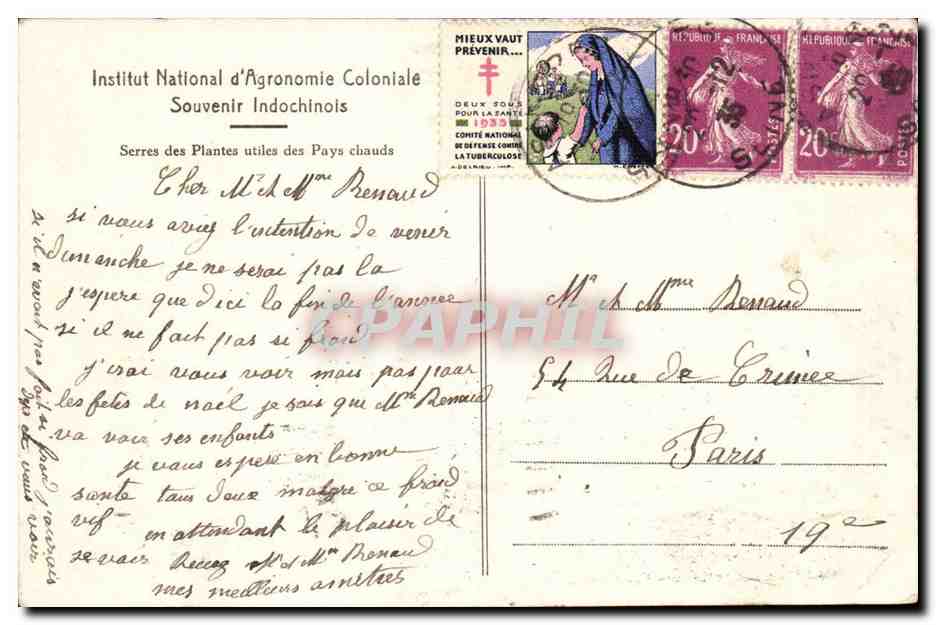 Institut National d'Agronomie Coloniale
Souvenir Indochinois
Serres des Plantes utiles des Pays chauds
Cher Mr et Mme Renaud
si vous aviez l'intention de venir
dimanche je ne serai pas la
j'espere que d'ici la fin de l'année
si il ne fait pas si froid
j'irai vous voir mais pas pour
les fetes de noël je sais que Mme Renaud
va voir ses enfants
je vous espere en bonne
sante tous deux malgre ce froid
vif en attendant le plaisir de
se voir Recevez Mr et Mme Renaud
mes meilleurs amitiés
si il n'avait pas fait si froid j'aurais
été vous voir
MIEUX VAUT
PRÉVENIR...
DEUX SOUS
POUR LA SANTÉ
1935
COMITÉ NATIONAL
DE DÉFENSE CONTRE
LA TUBERCULOSE
REPUBLIQUE FRANÇAISE
20c
POSTES
REPUBLIQUE FRANÇAISE
20c
POSTES
12
35
CPAPHIL
Mr et Mme Renaud
54 Rue de Crimée
Paris
19e